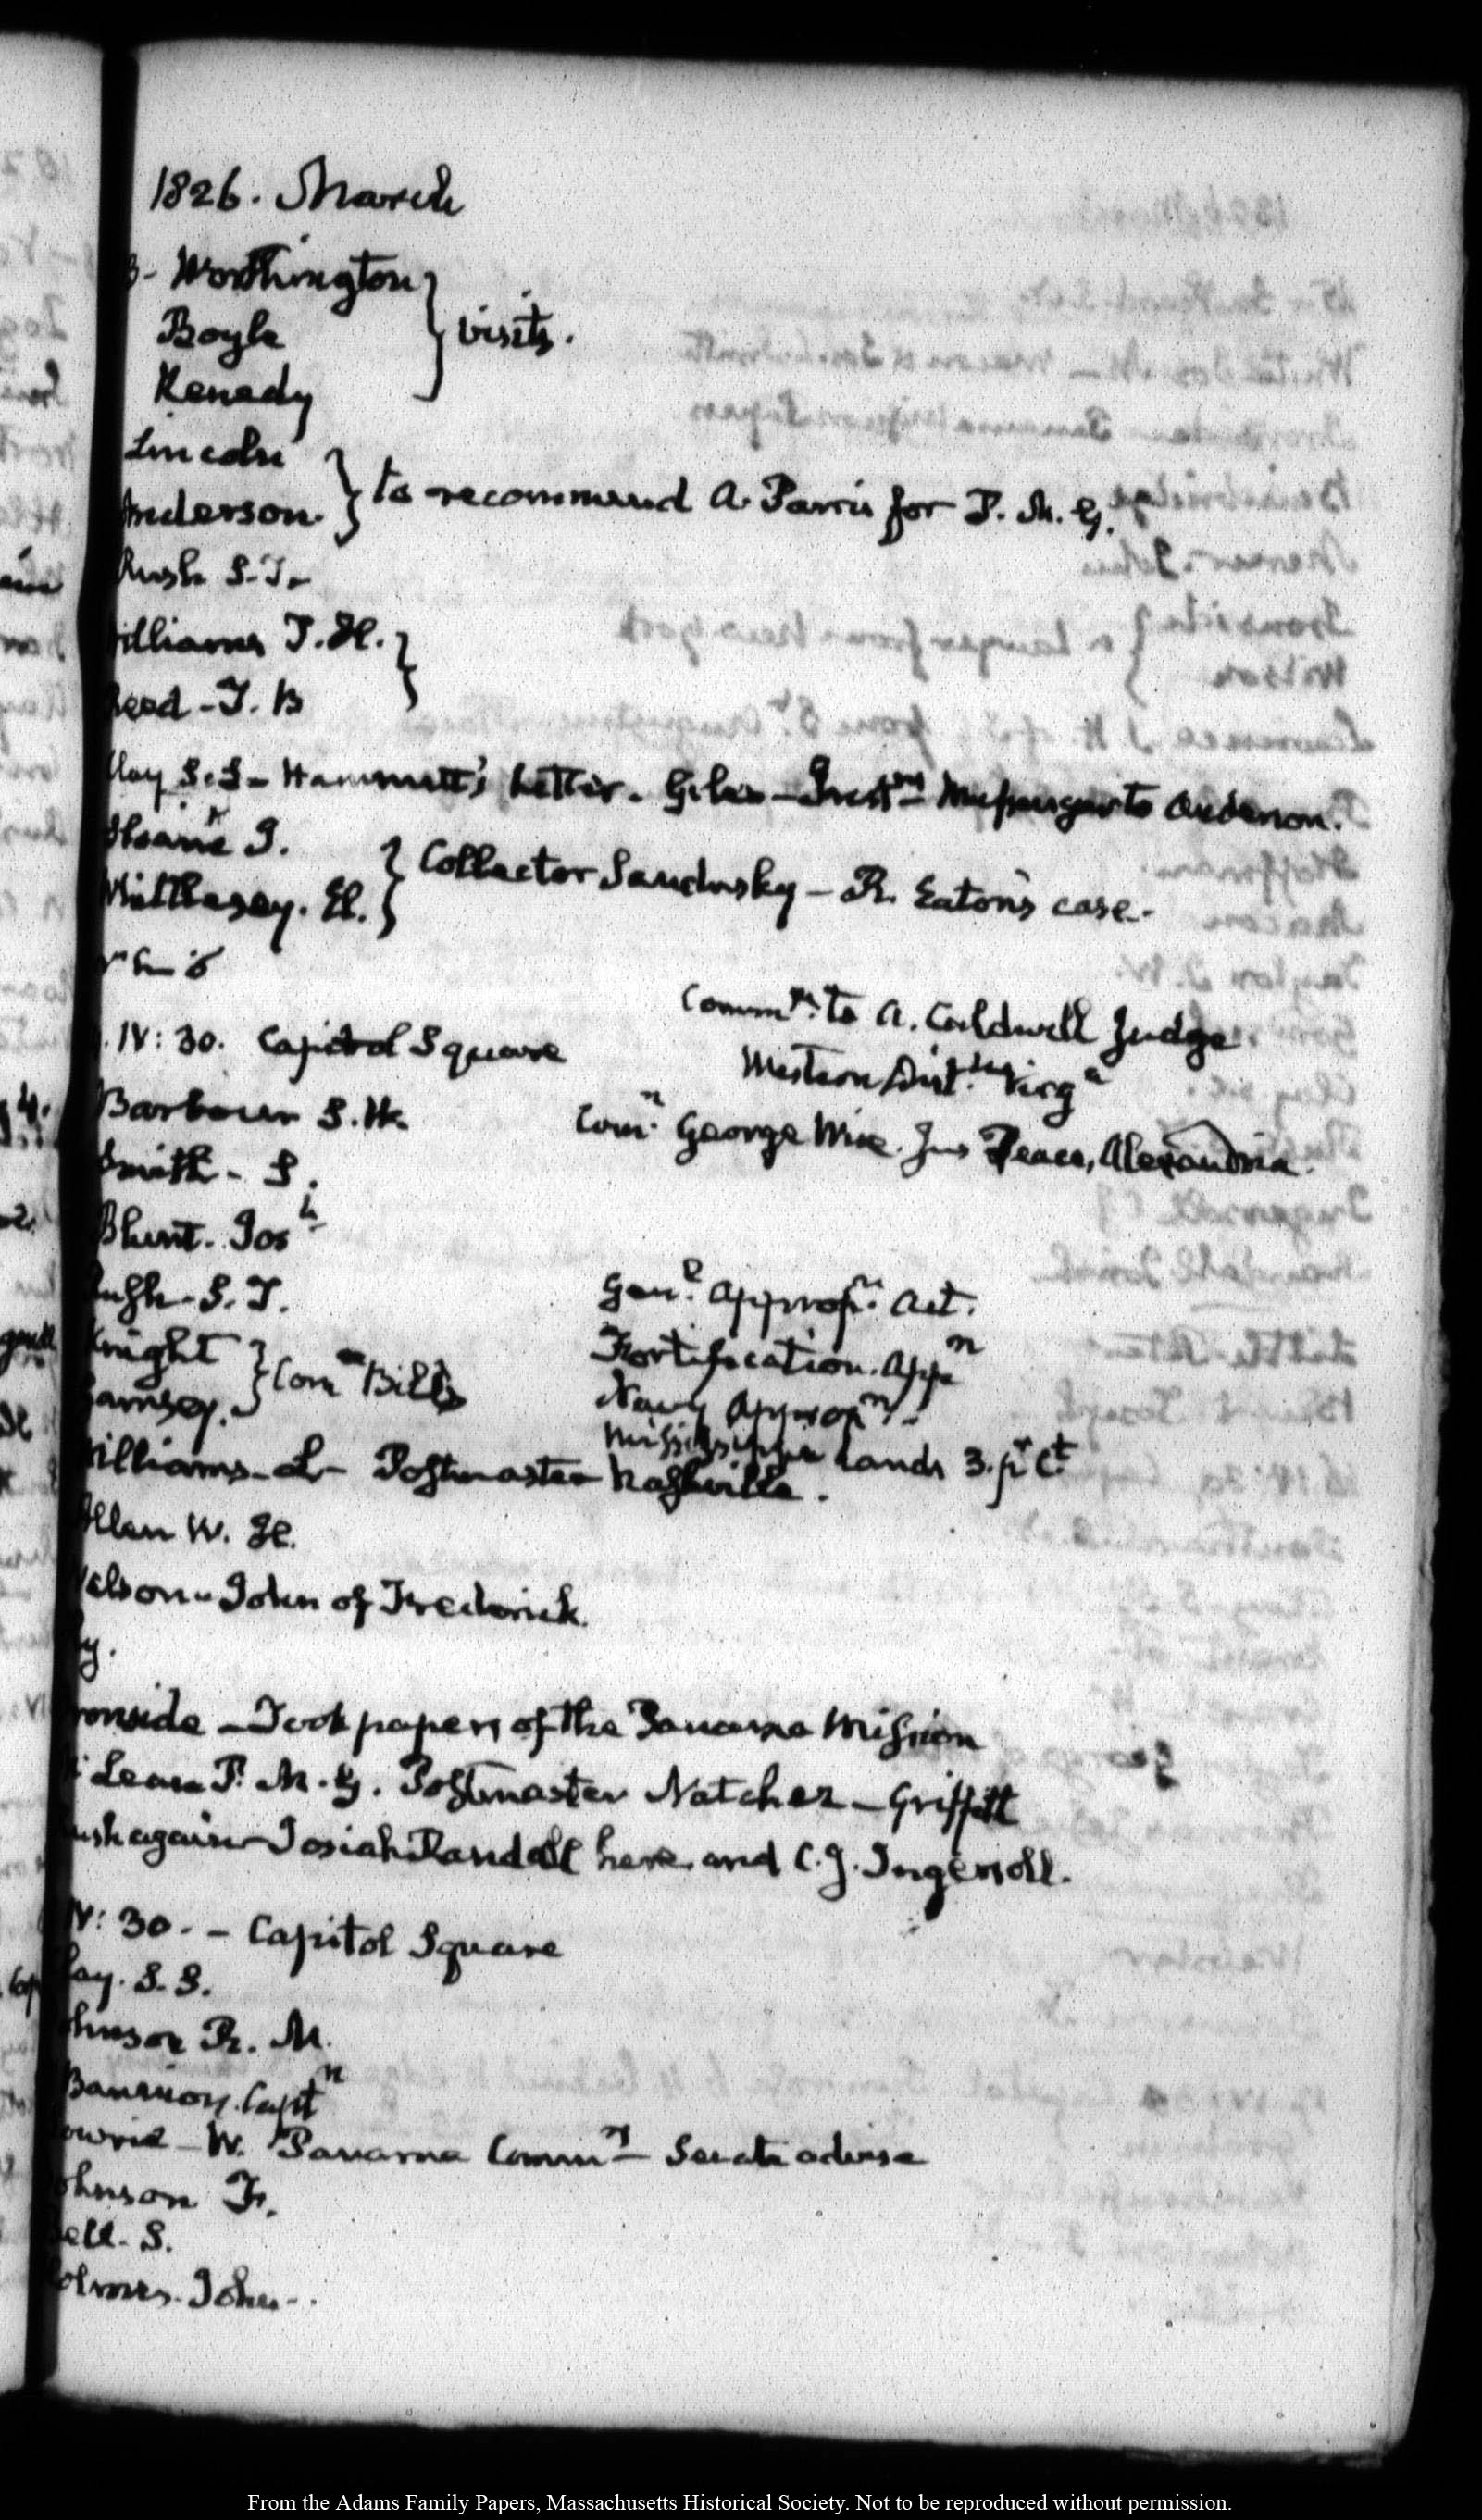 1826. March
3- Worthington
Boyle } visits.
Kenedy
Lincoln
Anderson. } to recommend A. Parris for P. M. G.
Rush S.T.
illiams T. H. }
Reed - T. B
Clay S.S - Hammett's Letter. Giles - Inst.ns Messenger to Anderson.
Sloane J.
Whittlesey. El. } Collector Sandusky - R. Eaton's case.
IV: 30. Capitol Square
Comm.n to A. Caldwell Judge
Western Dist. Virg.a
Barbour S.W.
Com.n George Wise. Jus Peace, Alexandria.
Smith - S.
Blunt. Jos.h
Rush - S. T.
Gen.l Approp.n Act.
Knight
Ramsey. } Com.ee Bills
Fortification. App.n
Navy Approp.n -
Mississippi Lands 3. pr Ct
illiams - L - Postmaster Nashville.
Allen W. H.
Nelson - John of Frederick.
y.
ronside - Took papers of the Panama Mission
Lean P. M. G. Postmaster Natchez - Griffith
ush again - Josiah Randall here and C. J. Ingersoll.
IV: 30. - Capitol Square
lay. S. S.
ohnson R. M.
owrie - W. Panama Comm.n - Senate advise
ohnson F.
ell - S.
olmes. John -.
From the Adams Family Papers, Massachusetts Historical Society. Not to be reproduced without permission.